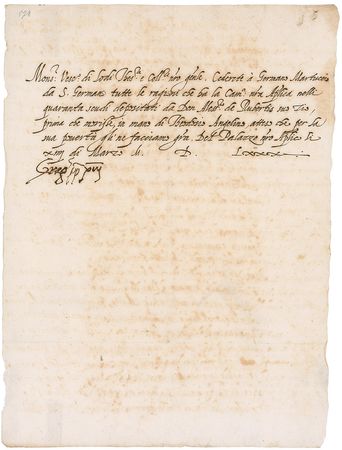 Mons.r Vesc.o di Lodi Thes.e e Coll.re nro gnle. Cederete à Germano Martuccio
da S. Germano tutte le ragioni che ha la Cam.a nra Aplica nelli
quaranta scudi depositati da Don Aless.o de Rubertis suo zio,
prima che morisse, in mano di Theodosio Angelino, atteso che per la
sua povertà gli ne facciamo gra. Dal Palazzo nro Aplico li
xiiij di Marzo M. D. Lxxxx
Greg.